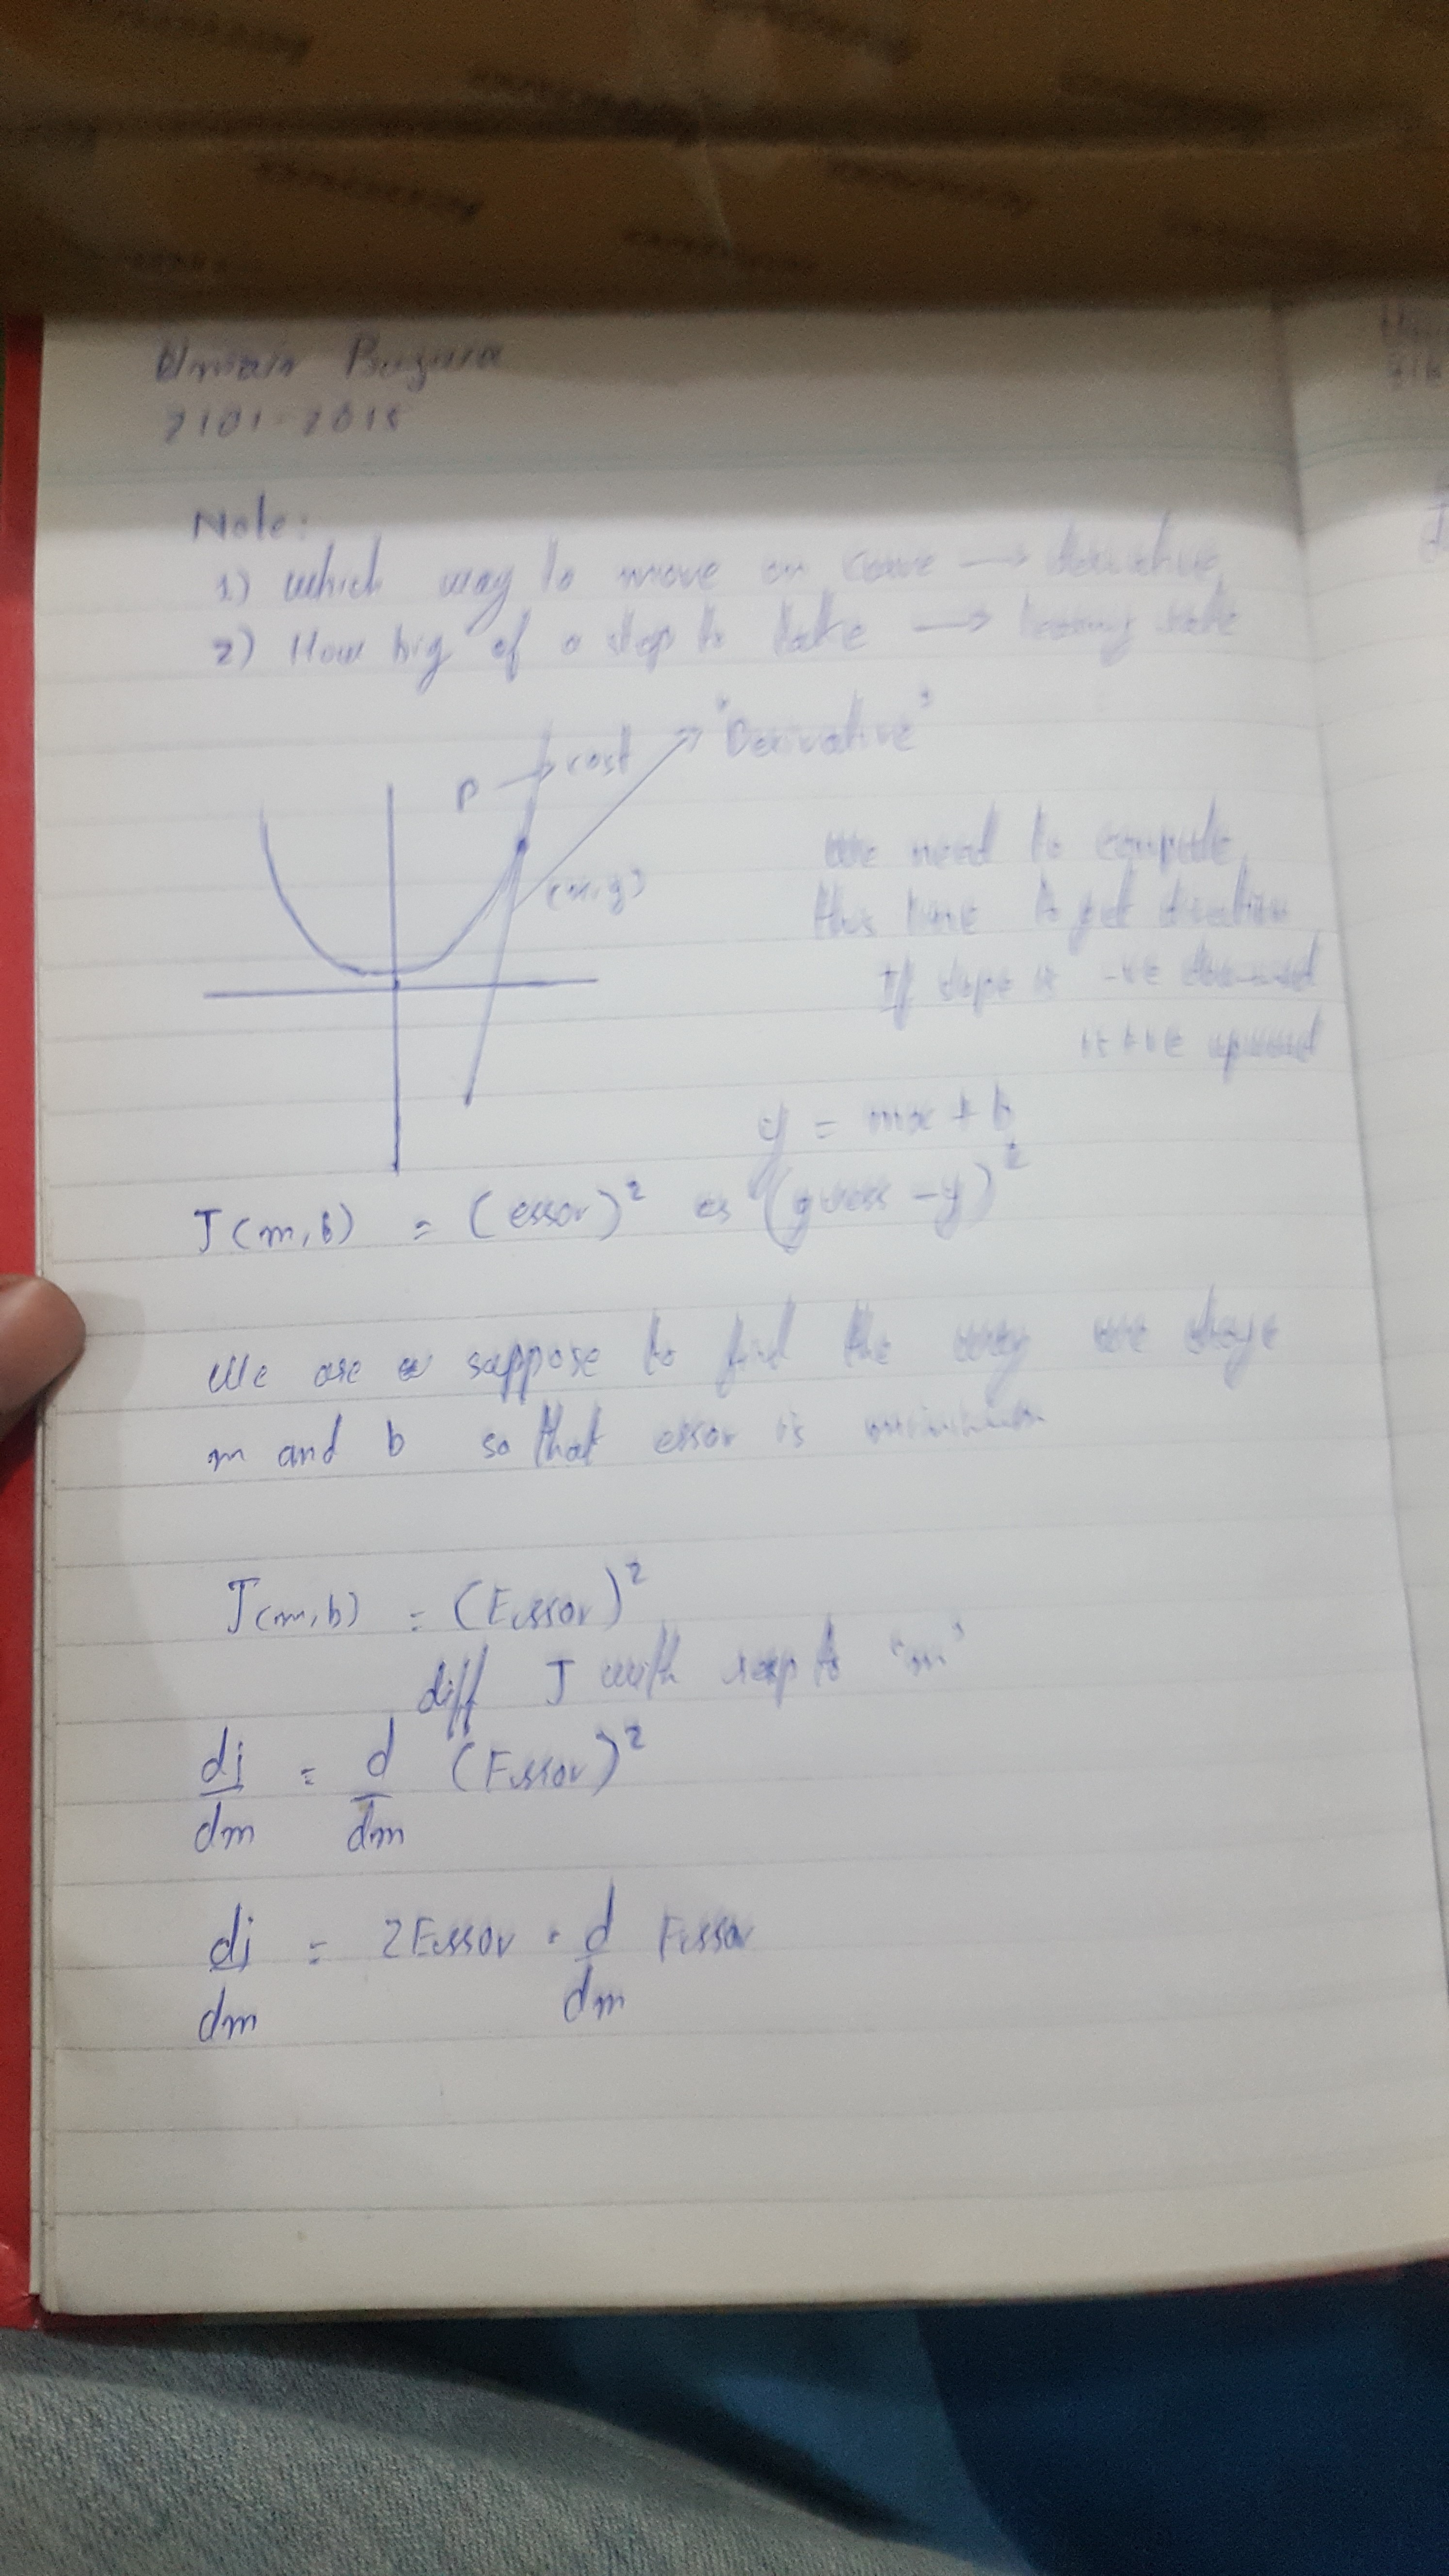 Note:
1) which way to move on curve → derivative
2) How big of a step to take → learning rate
"Derivative"
P → cost
(x,y)
we need to compute
this line to get direction
If slope is -ve downward
is +ve upward
y = mx + b
J(m,b) = (error)² or (guess - y)²
We are suppose to find the way we
m and b so that error is minimum
J(m,b) = (Error)²
diff J with resp to 'm'
dj/dm = d/dm (Error)²
dj/dm = 2Error . d/dm Error